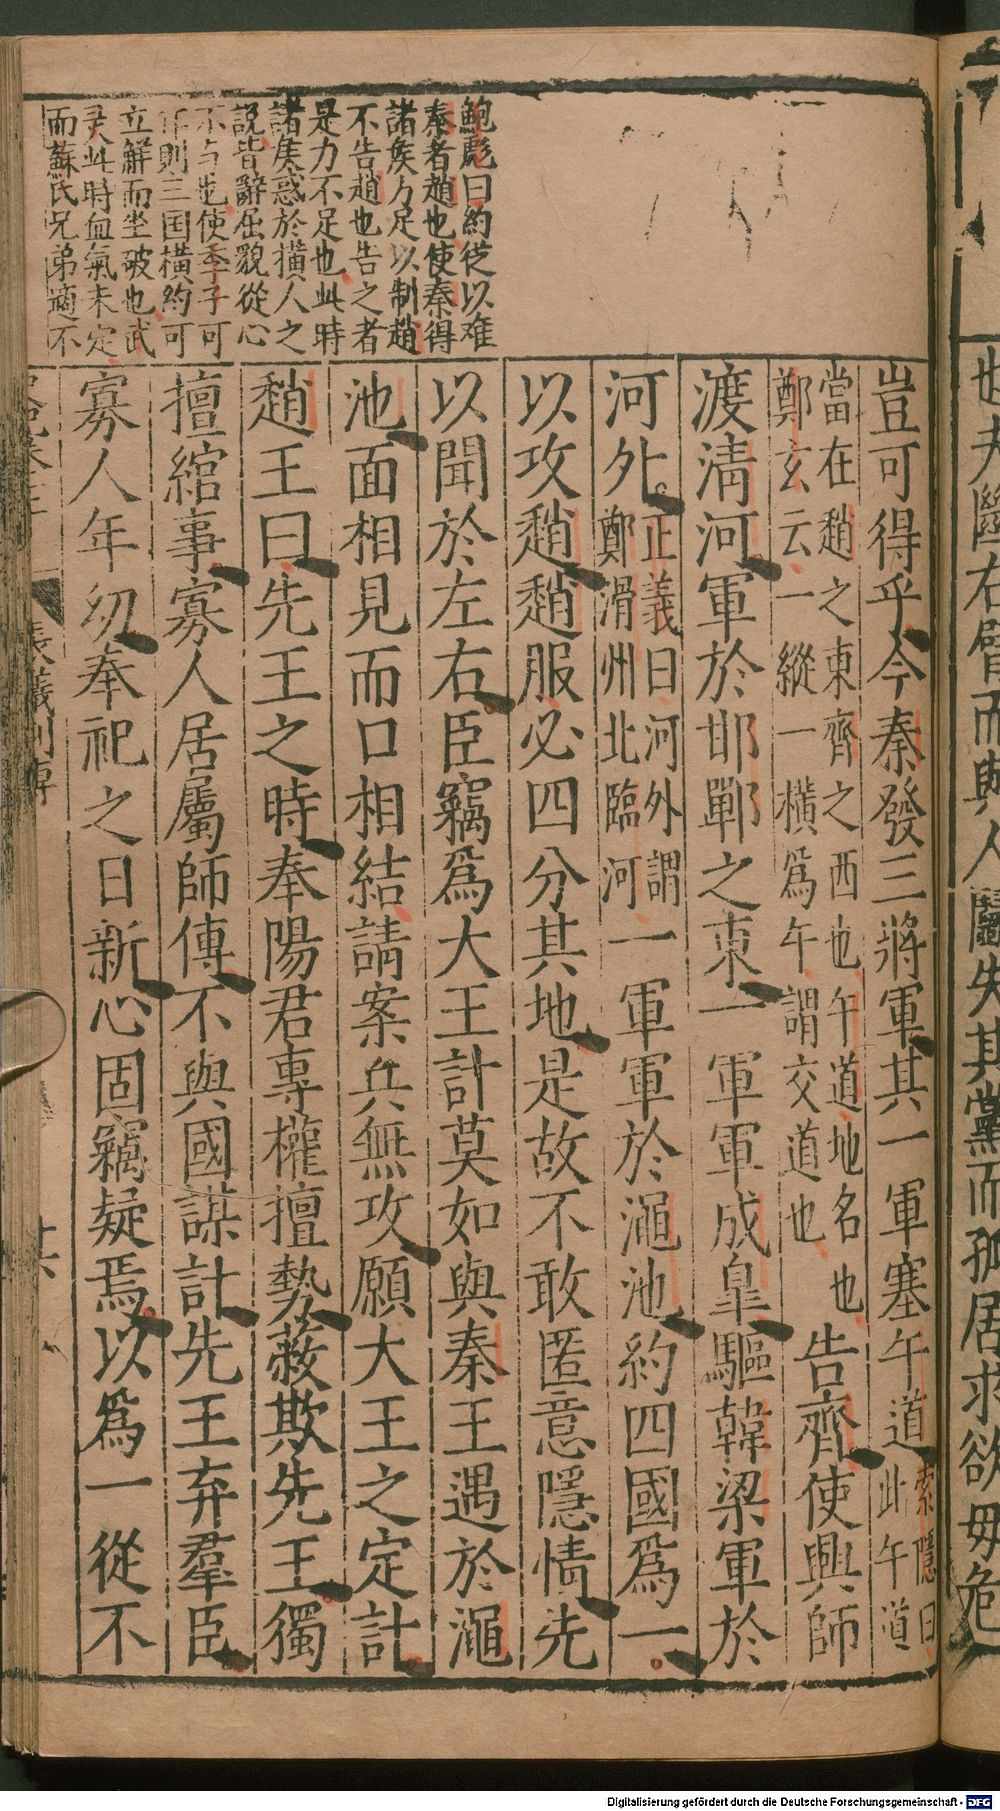 鮑彪曰約從以难
秦者趙也使秦得
諸侯力足以制趙
不告趙也告之者
是力不足也此時
諸侯惑於橫人之
説皆辭屈貌從心
不与也使季子可
作則三国橫約可
立解而坐破也武
灵此時血氣未定
而蘇氏兄弟適不
豈可得乎今秦發三將軍其一軍塞午道索隱曰此午道
當在趙之東齊之西也午道地名也鄭玄云一縱一橫爲午謂交道也告齊使興師
渡淸河軍於邯鄲之東一軍軍成皐驅韓梁軍於
河外正義曰河外謂鄭滑州北臨河一軍軍於澠池約四國爲一
以攻趙趙服必四分其地是故不敢匿意隱情先
以聞於左右臣竊爲大王計莫如與秦王遇於澠
池面相見而口相結請案兵無攻願大王之定計
趙王曰先王之時奉陽君專權擅勢蔽欺先王獨
擅綰事寡人居屬師傳不與國謀計先王弃羣臣
寡人年幼奉祀之日新心固竊疑焉以爲一從不
張儀列傳
十六
世夫斷右臂而與人鬭失其黨而孤居求欲毋危
Digitalisierung gefördert durch die Deutsche Forschungsgemeinschaft - DFG